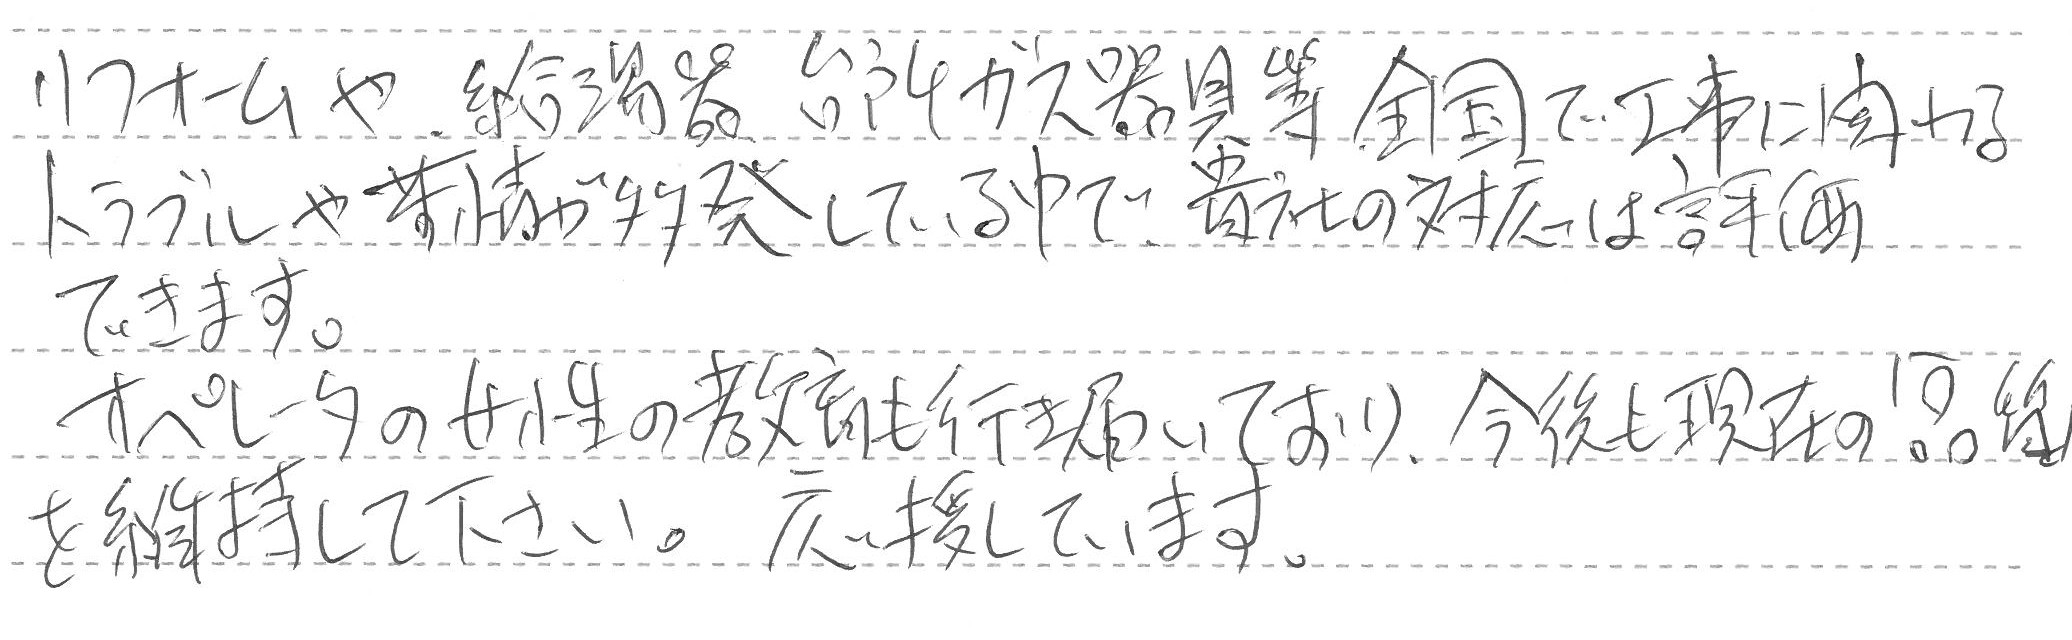 リフォームや、給湯器、台所ガス器具等全国で工事に関わる
トラブルや苦情が多発している中で、貴社の対応は評価
できます。
オペレータの女性の教育も行き届いており、今後も現在の
を維持して下さい。応援しています。